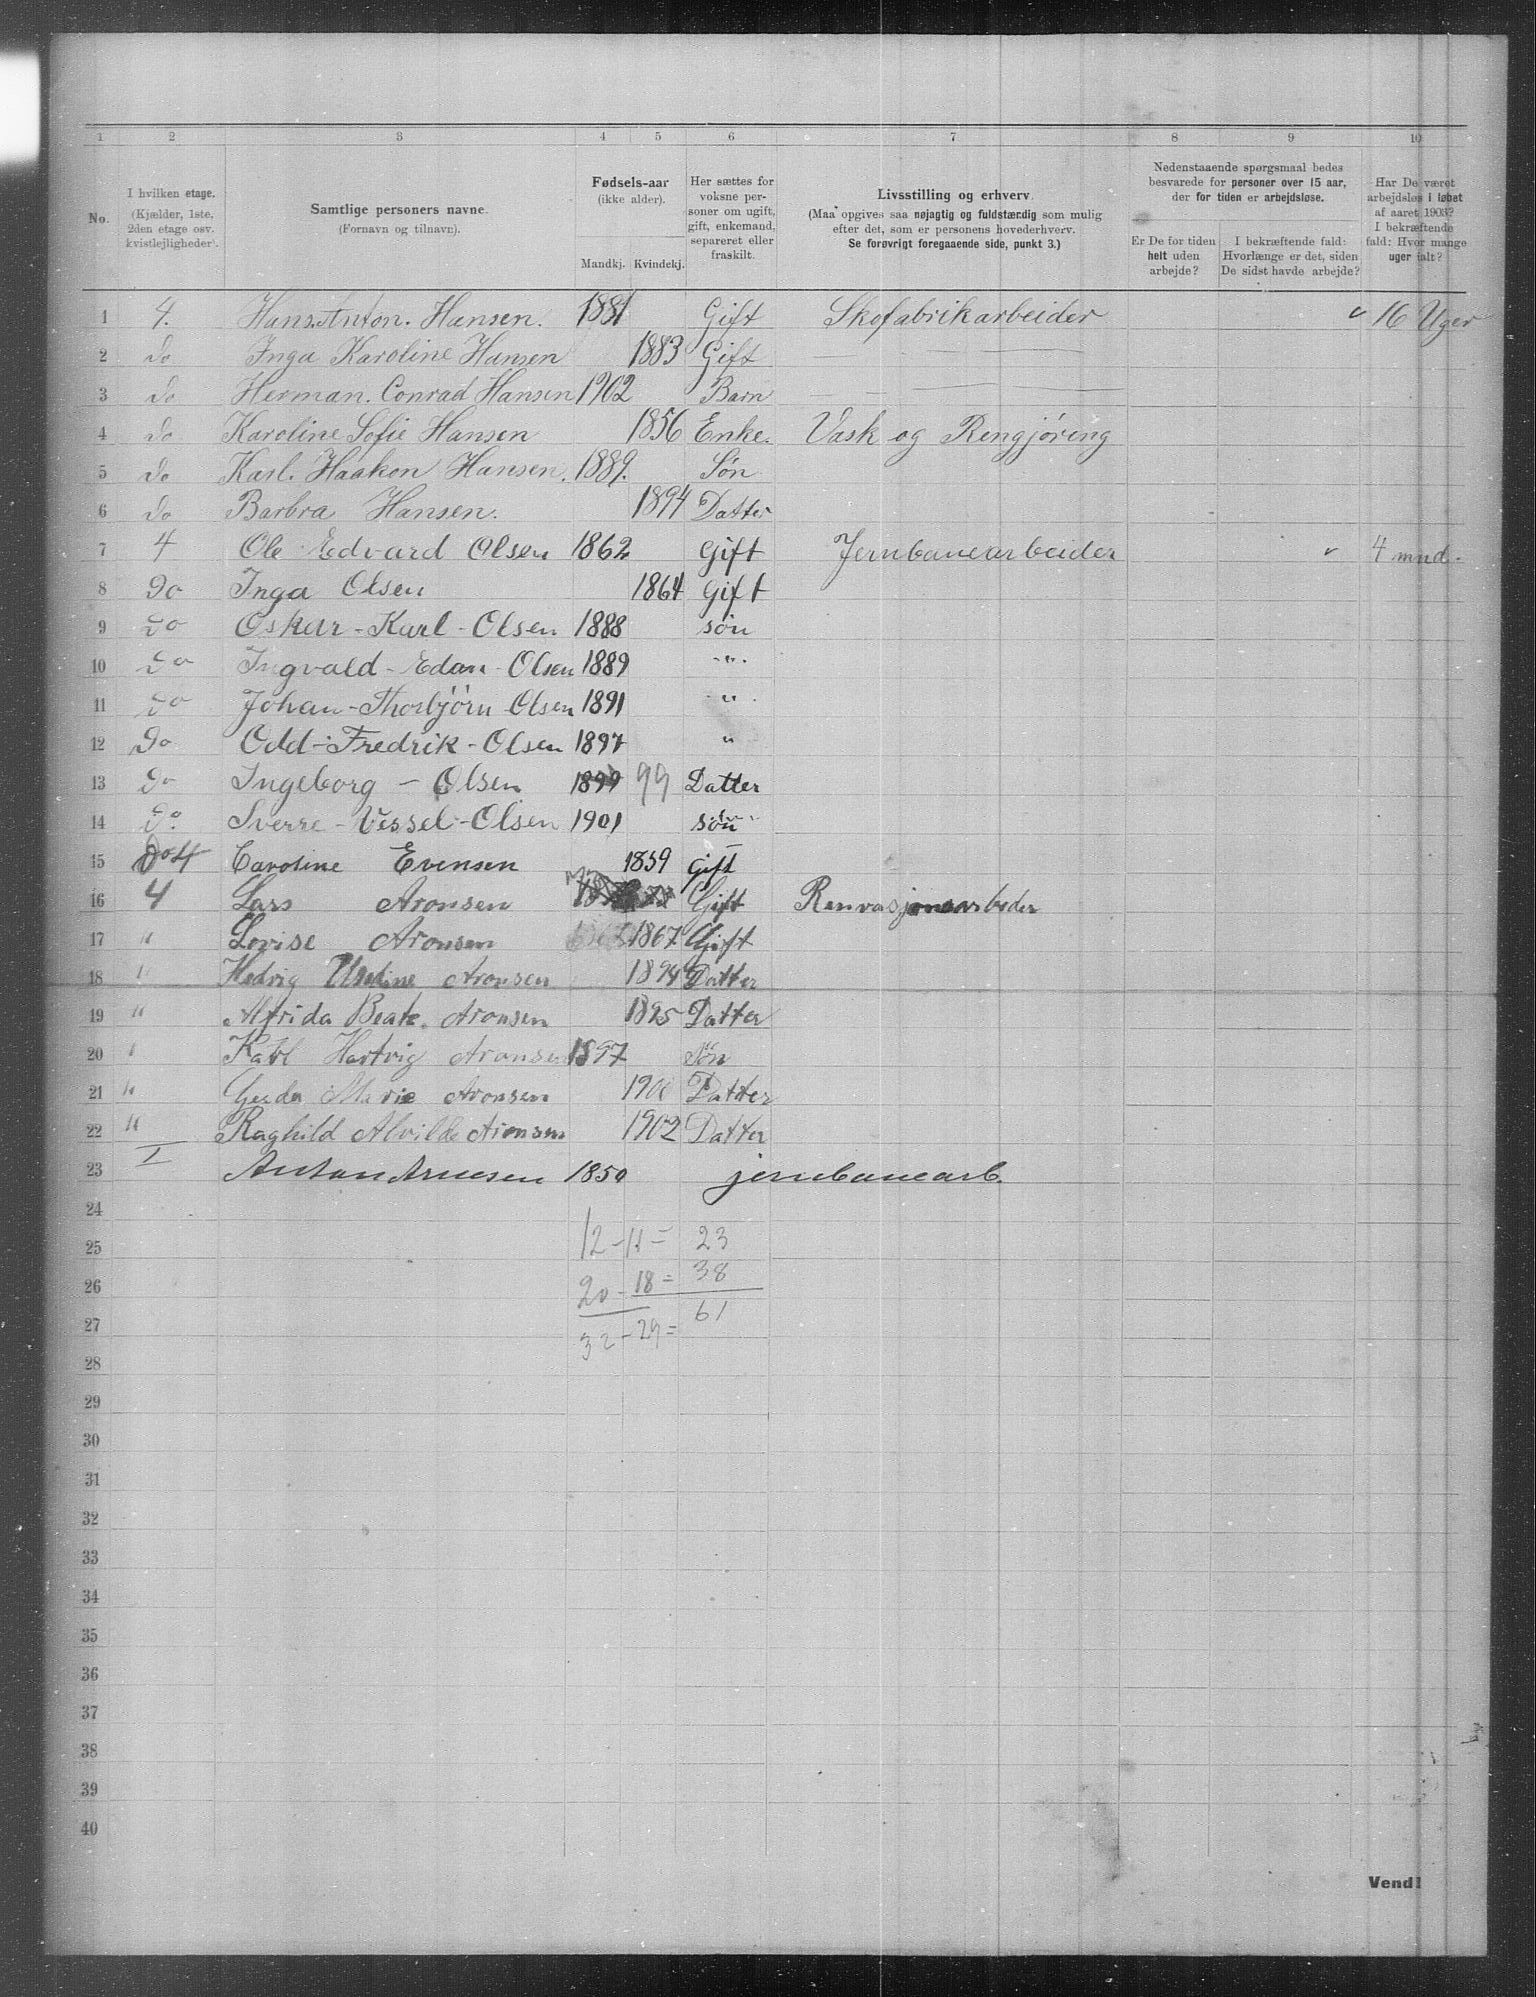 1 2 3 4 5 6 7 8 9 10
No.
I hvilken etage.
(Kjælder, 1ste,
2den etage osv.
kvistlejligheder).
Samtlige personers navne.
(Fornavn og tilnavn).
Fødsels-aar
(ikke alder).
Mandkj. Kvindekj.
Her sættes for
voksne per-
soner om ugift,
gift, enkemand,
separeret eller
fraskilt.
Livsstilling og erhverv.
(Maa opgives saa nøjagtig og fuldstærdig som mulig
efter det, som er personens hovederhverv.
Se forøvrigt foregaaende side, punkt 3.)
Nedenstaaende spørgsmaal bedes
besvarede for personer over 15 aar,
der for tiden er arbejdsløse.
Er De for tiden
helt uden
arbejde?
I bekræftende fald:
Hvorlænge er det, siden
De sidst havde arbejde?
Har De været
arbejdsløs i løbet
af aaret 1903?
I bekræftende
fald: Hvor mange
uger ialt?
1 4. Hans Anton. Hansen. 1881 Gift Skofabrikarbeider 16 Uger
2 do Inga Karoline Hansen 1883 Gift — — —
3 do Herman. Conrad Hansen 1902 Barn — — — —
4 do Karoline Sofie Hansen 1856 Enke. Vask og Rengjøring
5 do Karl. Haakon Hansen. 1889. Søn
6 do Barbra Hansen. 1894 Datter
7 4 Ole Edvard Olsen 1862 Gift Jernbanearbeider 4 mnd.
8 Do Inga Olsen 1864 Gift
9 Do Oskar - Karl - Olsen 1888 søn
10 Do Ingvald - Edan - Olsen 1889 "
11 Do Johan - Thorbjörn Olsen 1891 "
12 Do Odd - Fredrik - Olsen 1897 "
13 Do Ingeborg - Olsen 1899 99 Datter
14 Do. Sverre - Vessel - Olsen 1901 søn
15 Do 4 Caroline Evensen 1859 Gift
16 4 Lars Aronsen Gift Renvasjonsarbeder
17 " Lovise Aronsen 1867 Gift
18 " Hedvig Aronsen 1894 Datter
19 " Alfrida Beate. Aronsen 1895 Datter
20 " Karl Hartvig Aronsen 1897 Søn
21 " Gerda Marie Aronsen 1900 Datter
22 " Raghild Alvilde Aronsen 1902 Datter
23 I Anton Arnesen 1850 jernbanearb.
24
25 12 - 11 = 23
26 20 - 18 = 38
27 32 - 29 = 61
28
29
30
31
32
33
34
35
36
37
38
39
40
Vend!